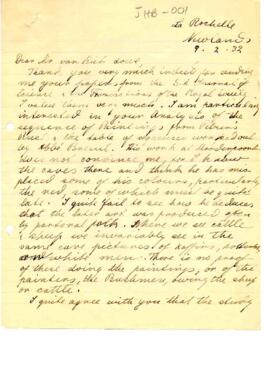 JHB-001
La Rochelle
Newlands
9-2-32
Dear Dr. van Riet Lowe,
Thank you very much indeed for sending
me your papers from the S.A. Journal of
Science & the Transactions of the Royal Society
I value them very much. I am particularly
interested in your Analysis of the
sequence of paintings from
the table of sequence worked out
by Abbé Breuil. His work at
does not convince me, for I know
the caves there and think he has mis
placed some of his colours, particularly
the red, some of which must be quite
late. I quite fail to see how he deduces
that the later art was produced also
by pastoral folk. Where we see cattle
& sheep we invariably see in the
same cave pictures of kaffirs,
or white men. There is no proof
of these doing the paintings, or of the
painters, the Bushmen, owning the sheep
or cattle.
I quite agree with you that the study